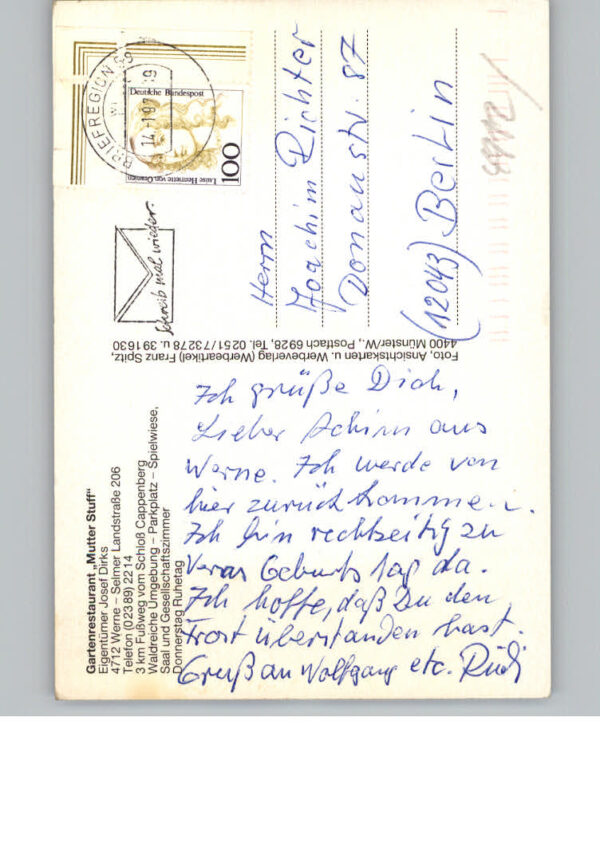 Gartenrestaurant „Mutter Stuff“
Eigentümer Josef Dirks
4712 Werne – Selmer Landstraße 206
Telefon (02389) 2214
3 km Fußweg vom Schloß Cappenberg
Waldreiche Umgebung – Parkplatz – Spielwiese,
Saal und Gesellschaftszimmer
Donnerstag Ruhetag
Ich grüße Dich,
Lieber Achim aus
Werne. Ich werde von
hier zurück kommen.
Ich bin rechtzeitig zu
Veras Geburtstag da.
Ich hoffe, daß Du den
Frost überstanden hast.
Gruß an Wolfgang etc. Rudi
Foto, Ansichtskarten u. Werbeverlag (Werbeartikel) Franz Spitz,
4400 Münster/W., Postfach 6928, Tel. 0251/73278 u. 391630
Schreib mal wieder.
BRIEFREGION
14.-1.97
19
Deutsche Bundespost
100
Luise Henriette von Oranien
Herrn
Joachim Richter
Donaustr. 87
(12043) Berlin